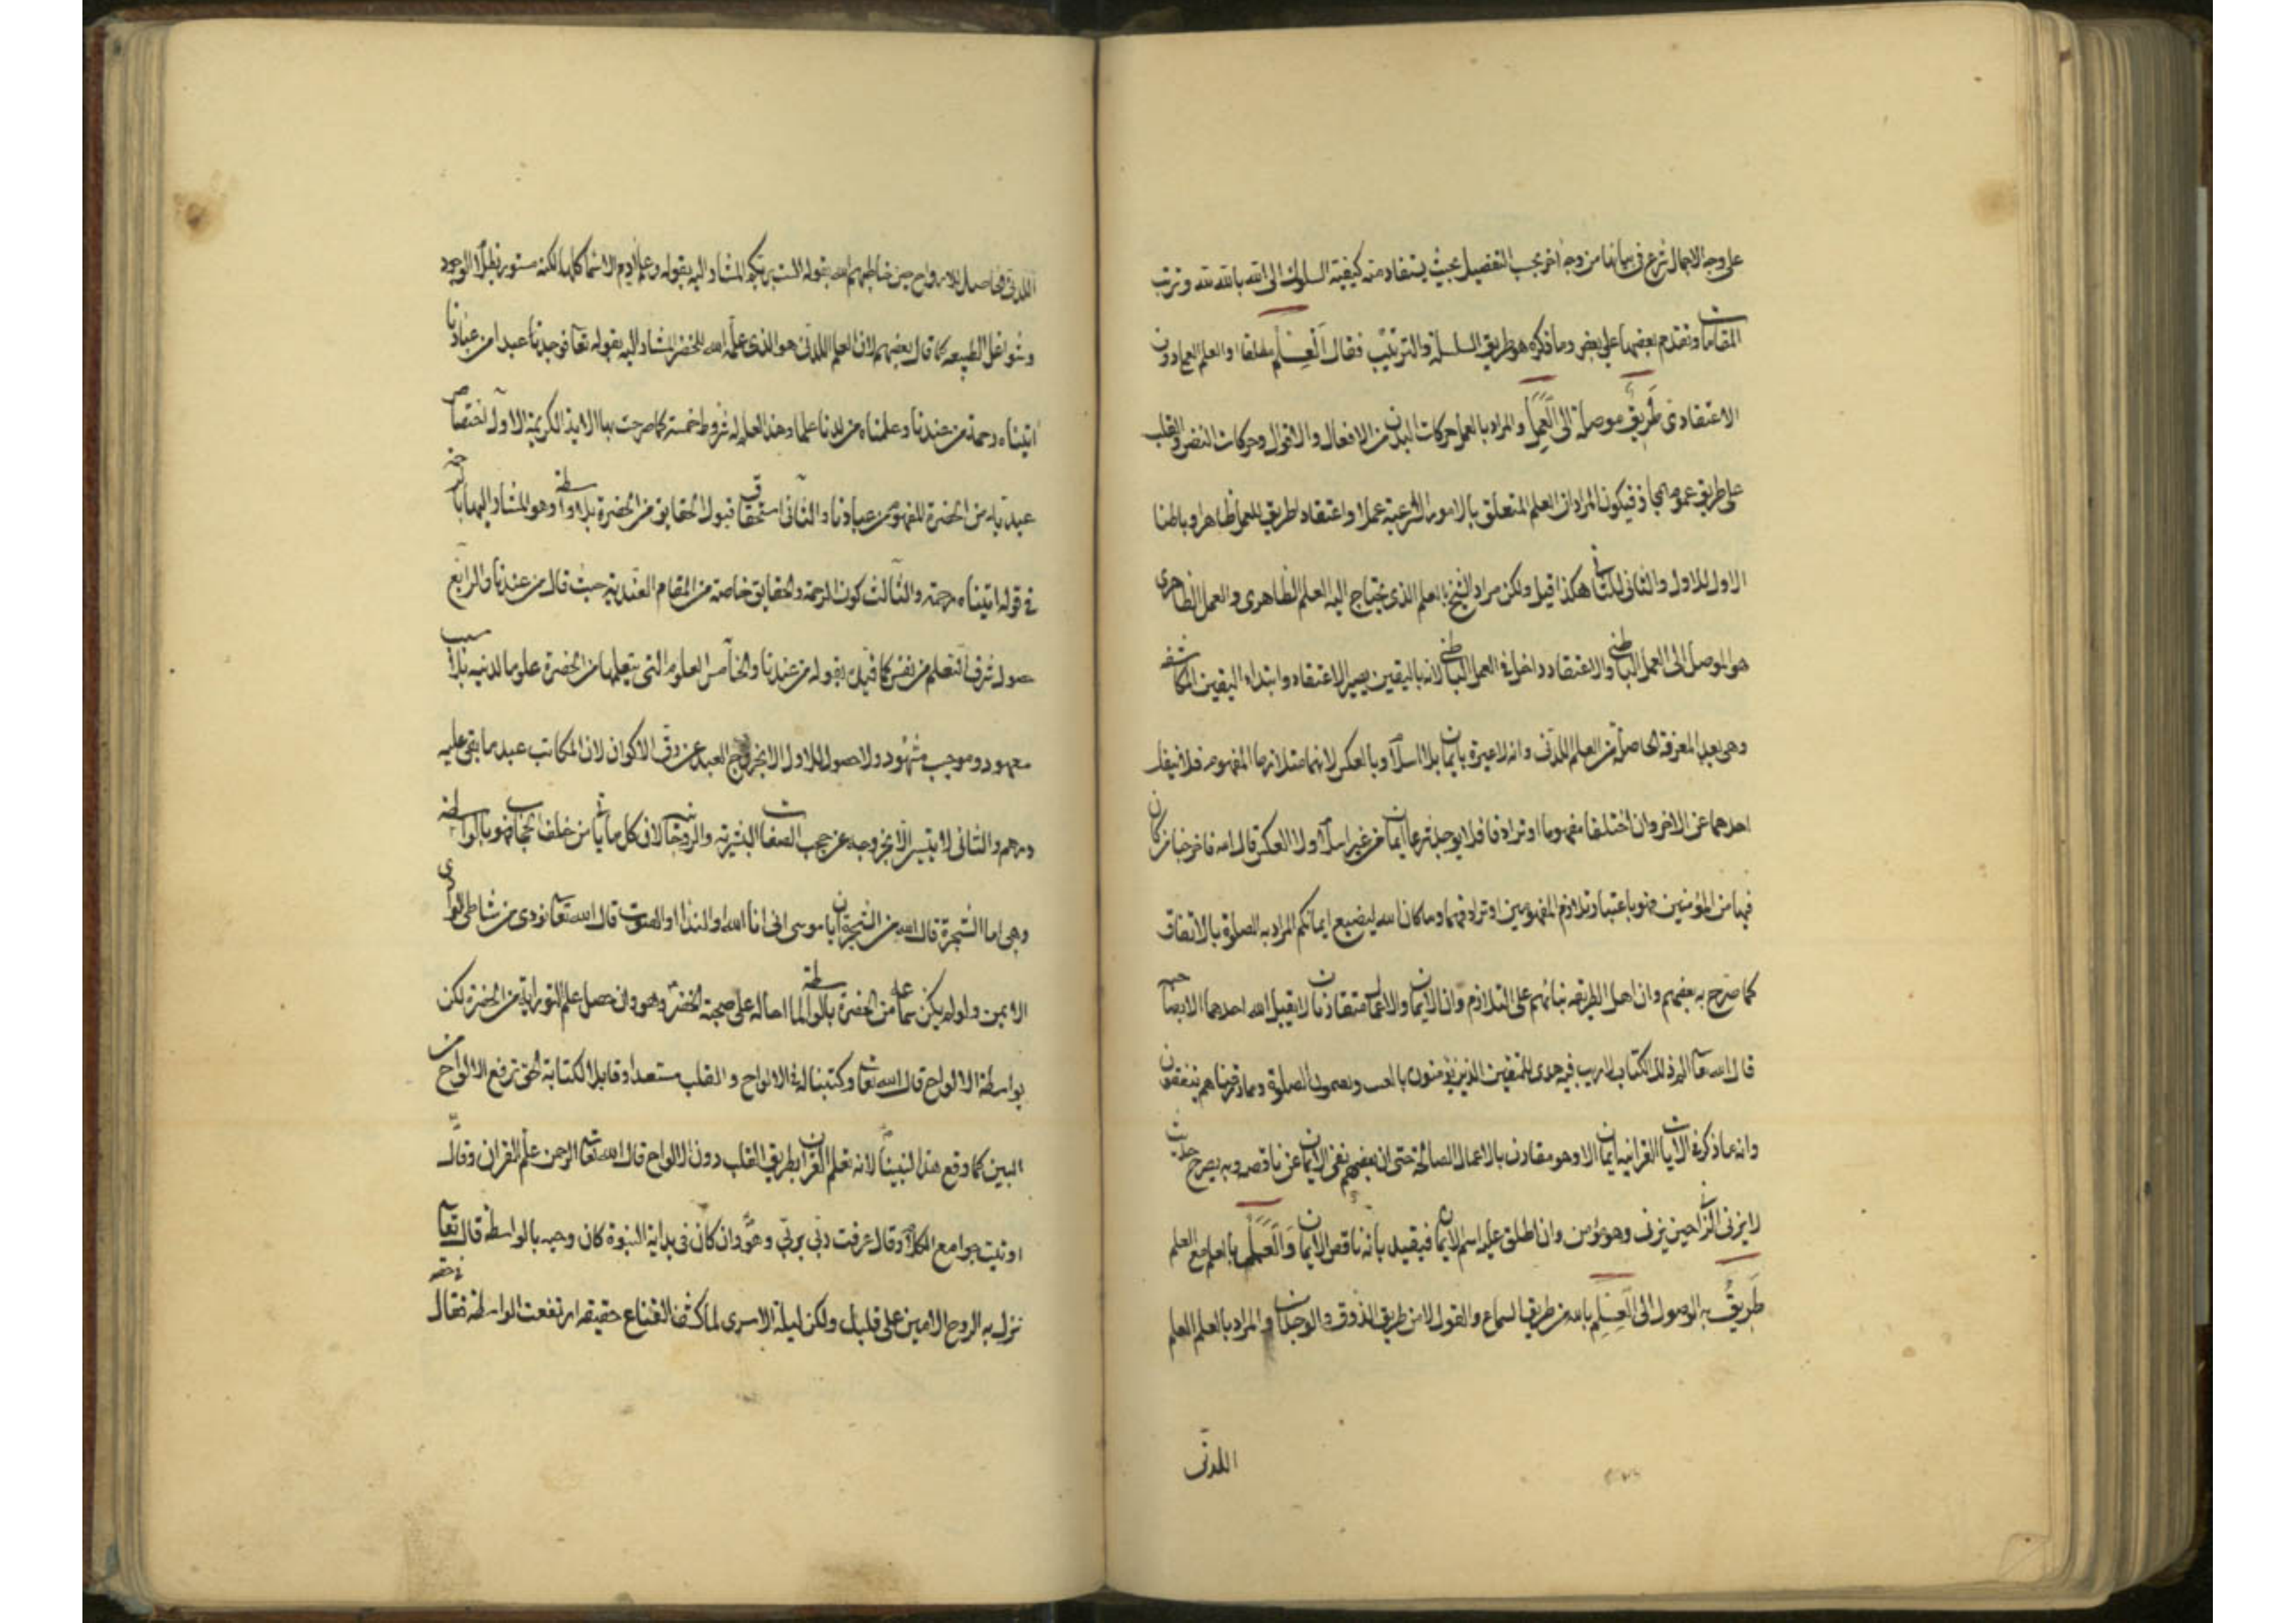 على وجه الاجمال شرع فى بيانها من وجه آخر بحسب التفصيل بحيث يستفاد منه كيفية السلوك الى الله بالله لله وترتب
المقامات وتقدم بعضها على بعض وما ذكره هو طريق السلسلة والترتيب فقال العلم مطلقا او العلم العماد دون
الاعتقادى طريق موصلة الى العمل والمراد بالعمل حركات البدن من الافعال والاقوال وحركات النفس والقلب
على طريق عموم المجاز فيكون المراد ان العلم المتعلق بالامور الشرعية عملا واعتقادا طريق للعمل ظاهرا وباطنا
الاول للاول والثانى للثانى هكذا قيل ولكن مراد الشيخ بالعلم الذى يحتاج اليه العلم الظاهرى والعمل الظاهرى
هو الموصل الى العمل الباطنى والاعتقاد داخل فى العمل الباطنى لانه باليقين يصير الاعتقاد وابتداء اليقين المكاشفة
وهى بعد المعرفة الحاصلة من العلم اللدنى وانه لا عبرة بايمان بلا اسلام وبالعكس لانهما متلازما المفهوم فلا ينفك
احدهما عن الآخر وان اختلفا مفهوما او ترادفا فلا يوجد شرعا ايمان من غير اسلام ولا العكس قال الله فاخرجنا من كان
فيها من المؤمنين فهو باعتبار تلازم المفهومين او ترادفهما وما كان الله ليضيع ايمانكم المراد به الصلوة بالاتفاق
كما صرح به بعضهم وان اهل الطريقة بنائهم على التلازم وان الايمان والاعمال متقارنان لا يقبل الله احدهما الا بصاحبه
قال الله تعالى الم ذلك الكتاب لا ريب فيه هدى للمتقين الذين يؤمنون بالغيب ويقيمون الصلوة ومما رزقناهم ينفقون
وانه ما ذكر فى الآيات القرآنية ايمان الا وهو مقارن بالاعمال الصالحة حتى ان بعضهم نفى الايمان عن ناقصه وبه يصرح حديث
لا يزنى الزانى حين يزنى وهو مؤمن وان اطلق عليه اسم الايمان فيقيد بانه ناقص الايمان والعمل بالعلم مع العلم
طريق به الوصول الى العلم بالله من طريق السماع والقول لا من طريق الذوق والوجدان والمراد بالعلم العلم
اللدنى
اللدنى الحاصل للارواح حين خاطبهم الله بقوله الست بربكم المشار اليه بقوله وعلم آدم الاسماء كلها لكنه مستور بظلال الوجود
وشواغل الطبيعه كما قال بعضهم لان العلم اللدنى هو الذى علمه الله للخضر المشار اليه بقوله تعالى فوجدنا عبدا من عبادنا
آتيناه رحمة من عندنا وعلمناه من لدنا علما وهذا العلم له شروط خمسة كما صرحت بها الاية الكريمة الاول اختصاص
عبديته من الحضرة المفهوم من عبادنا والثانى استحقاق قبول الحقايق من الحضرة بلا واسطة وهو المشار اليها بالرحمة
فى قوله اتيناه رحمة والثالث كون الرحمة والحقايق خاصة من المقام العندية حيث قال من عندنا والرابع
حصول شرف التعلم من نفس كما قيل بقوله من عندنا والخامس العلوم التى يتعلمها من الحضرة علوما لدنيه بلا سبب
معهود وموجب مشهود ولا حصول للاول الا بخروج العبد عن رق الاكوان لان المكاتب عبد ما بقى عليه
درهم والثانى لا يتيسر الا بخروجه عن حجب الصفات البشرية والروحانية لان كل ما ياتى من خلف حجاب فهو بالواسطة
وهى اما الشجرة قال الله من الشجرة ان يا موسى انى انا الله او الندا او الصوت قال الله تعالى نودى من شاطى الوادى
الايمن ولو لم يكن سماعه من الحضرة بالواسطة لما احاله على صحبة الخضر وهو وان حصل علم التوراية من الحضرة لكن
بواسطة الالواح قال الله تعالى وكتبنا له فى الالواح والقلب مستعدا وقابلا لكتابة الحق ترفع الالواح من
البين كما وقع هذا لنبينا لانه تعلم القرآن بطريق القلب دون الالواح قال الله تعالى الرحمن علم القران وقال
اوتيت جوامع الكلام وقال عرفت ربى بربى وهو وان كان فى بداية النبوة كان وحيه بالواسطة قال تعالى
نزل به الروح الامين على قلبك ولكن ليلة الاسرى لما كشف القناع حقيقه ارتفعت الواسطة فقال فى حقه